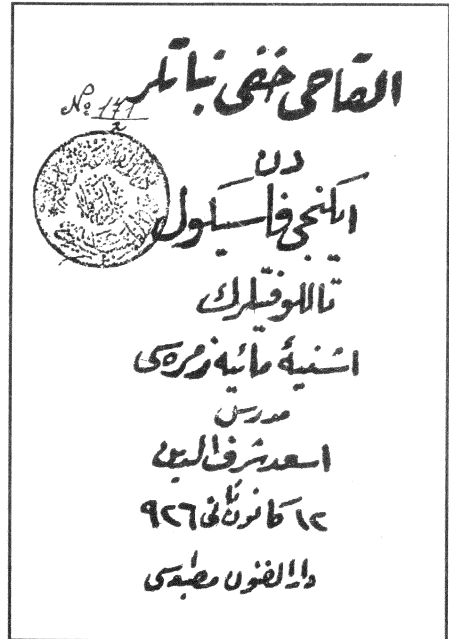 القاحى خفى نباتلر
№ 171/2
دن
ايكنجى فاسيكول
تاللوفيتلرك
اشنيهٔ مائيه زمره‌سى
مدرس
اسعد شرف الدين
١٢ كانون ثانى ٩٢٦
دار الفنون مطبعه‌سى